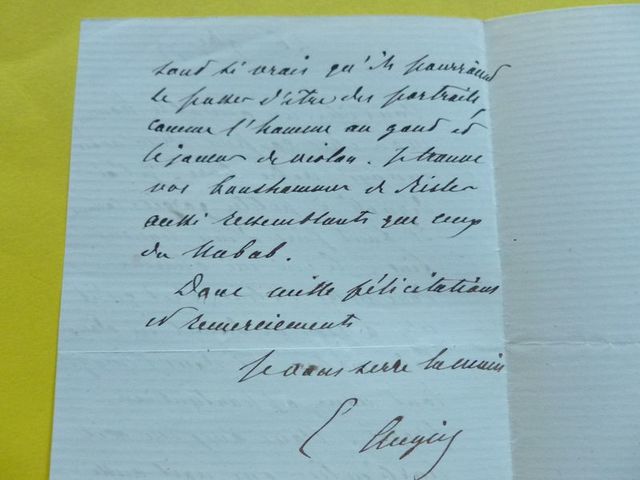 sont si vrais qu'ils pourraient
se passer d'être des portraits,
comme l'homme au gand et
le joueur de violon. Je trouve
vos bonshommes de Risler
aussi ressemblants que ceux
du Nabab.
Donc mille félicitations
et remerciements
Je vous serre la main
E Augier